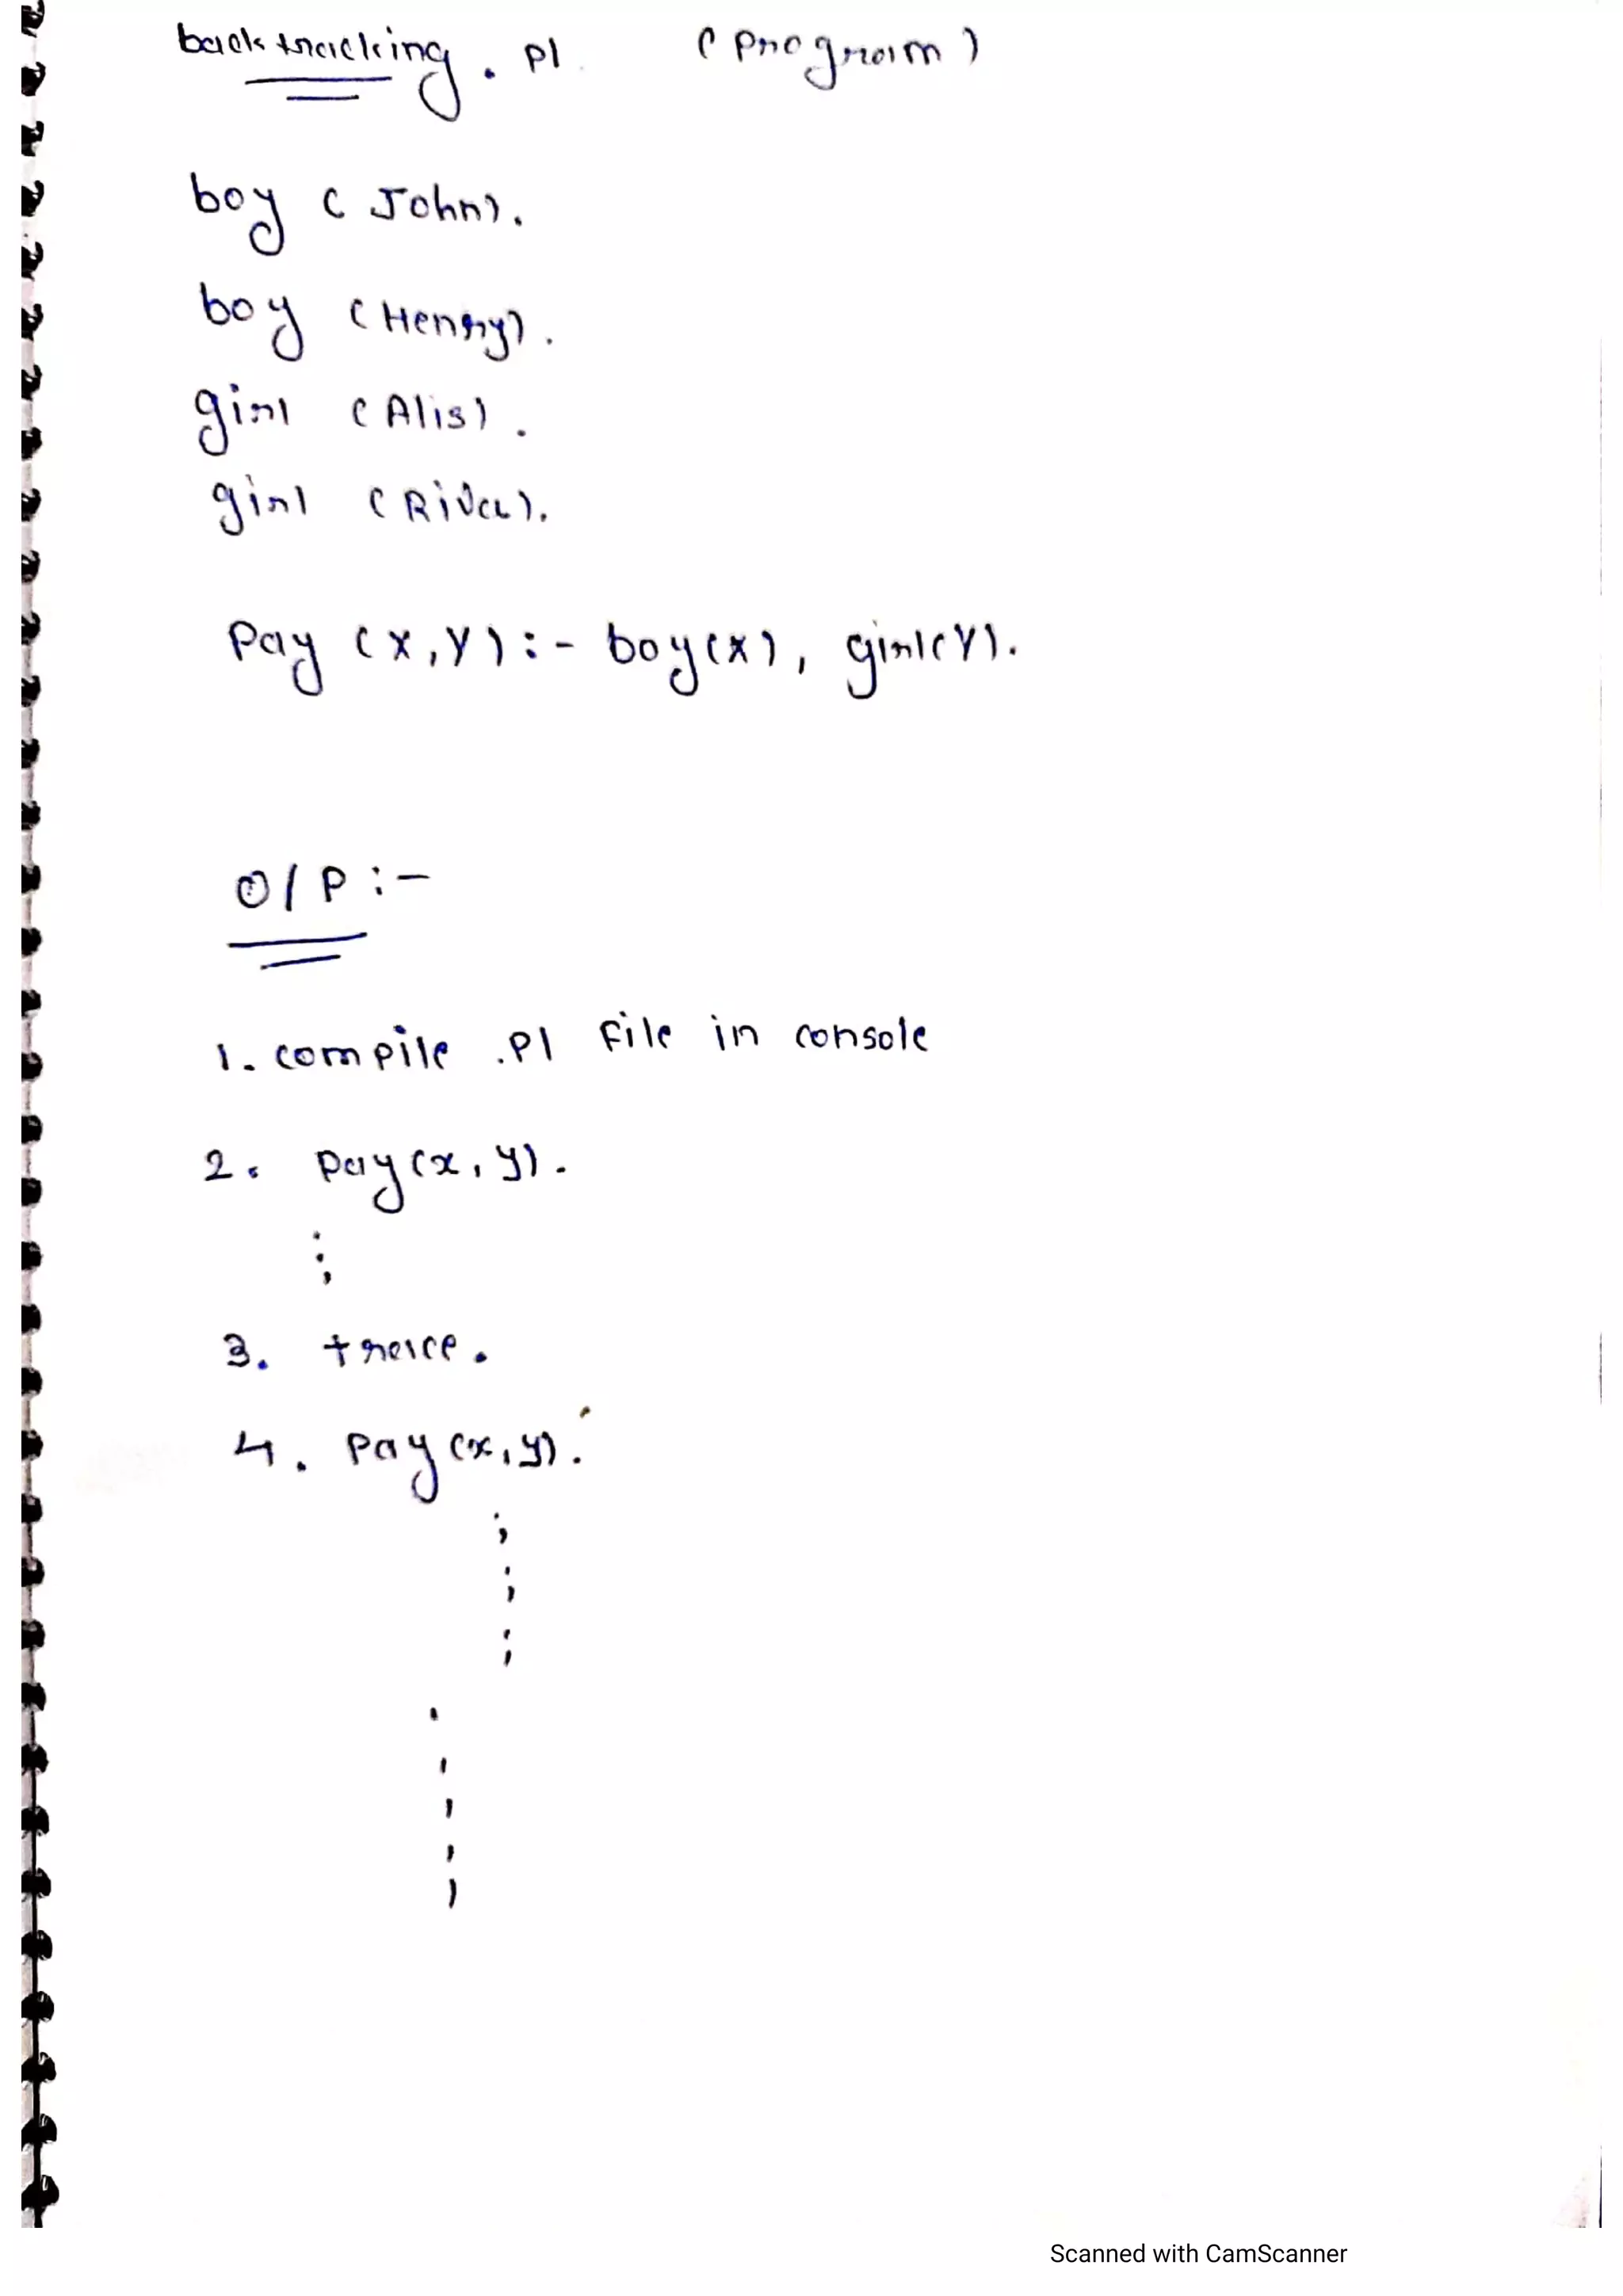 backtracking.pl (program)
boy (John).
boy (Henry).
girl (Alis).
girl (Riva).
Pay (X,Y):- boy(X), girl(Y).
O/P:-
1. compile .Pl File in console
2. Pay(x,y).
;
3. trace.
4. Pay(x,y).
;
;
;
Scanned with CamScanner